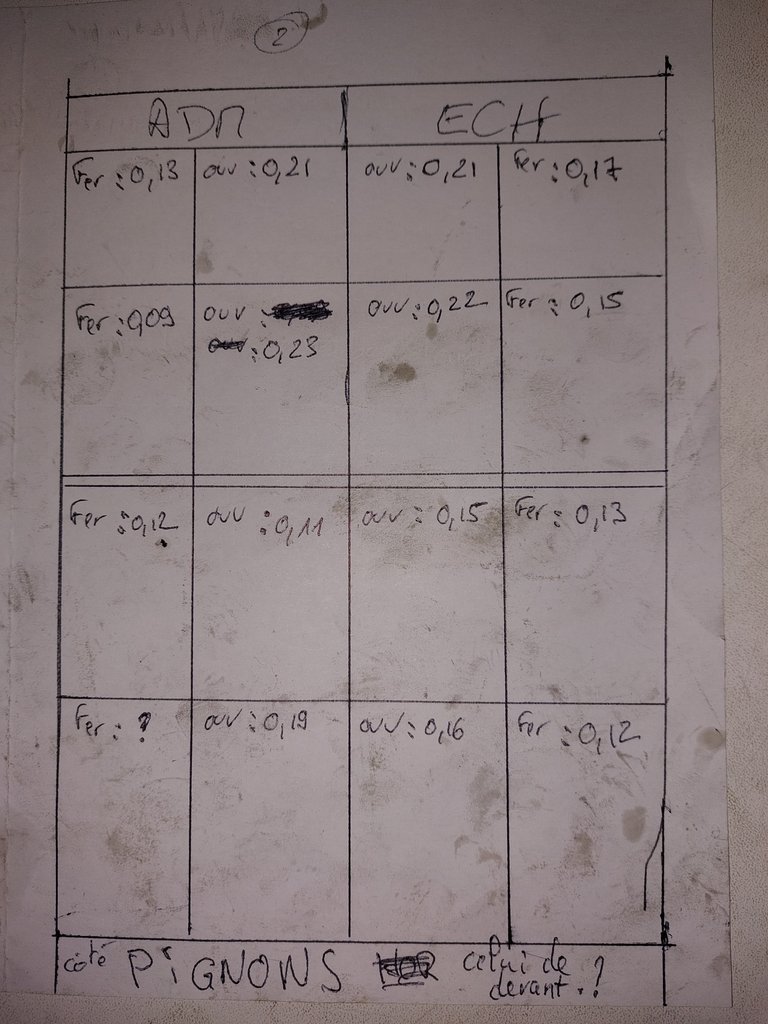 2
ADM ECH
Fer : 0,13 ouv : 0,21 ouv : 0,21 Fer : 0,17
Fer : 0,09 ouv : ouv : 0,22 Fer : 0,15
ouv : 0,23
Fer : 0,12 ouv : 0,11 ouv : 0,15 Fer : 0,13
Fer : ? ouv : 0,19 ouv : 0,16 Fer : 0,12
côté PiGNONS celui de
devant.?